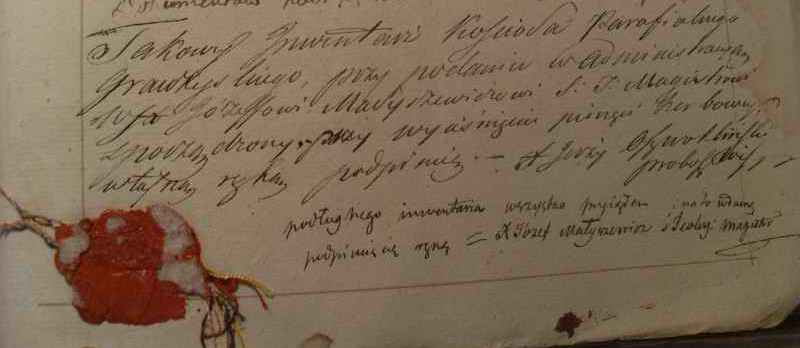 Takowy Inwentarz Kościoła Parafialnego
przy podaniu w Administracyą
Józeffowi Matyszewiczowi S: T: Magistrowi
sporządzony przy wyciśnięciu pieczęci herbowney
własną ręką podpisuię — X Jerzy
proboszcz
podług tego inwentarza wszystko przyiąłem i na to własną
podpisuię się ręką = X Józef Matyszewicz S Teologii Magistr